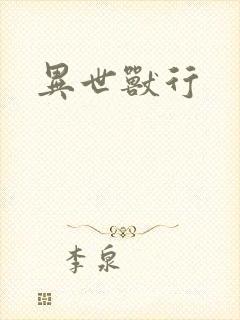 異世獸行
李泉